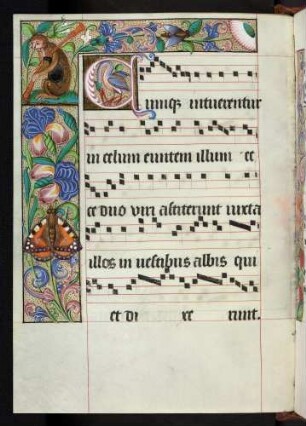 Cumqꝫ intuerentur
in celum euntem illum ec
ce duo viri astiterunt iuxta
illos in uestibus albis qui
et di xe runt.